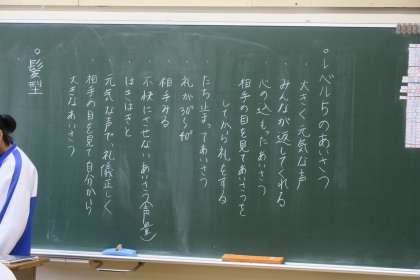 ○レベル5のあいさつ
・大きく元気な声
・みんなが返してくれる
・心の込もったあいさつ
・相手の目を見てあいさつを
してから礼をする
・たち止まってあいさつ
・礼が30°〜40°
・相手みる
・不快にさせないあいさつ(声量)
・はきはきと
・元気な声で、礼儀正しく
・相手の目を見て自分から
・大きなあいさつ
○髪型